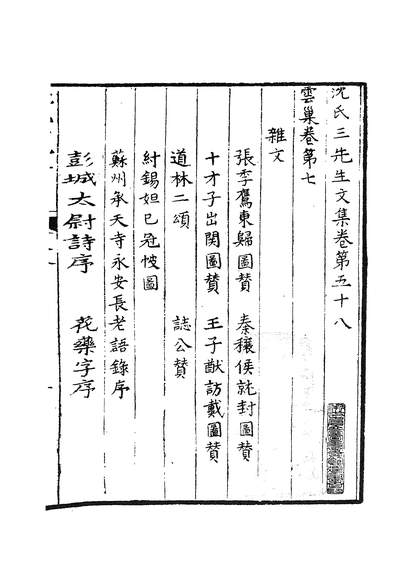 沈氏三先生文集卷第五十八
雲巢卷第七
雜文
張季鷹東歸圖贊 秦穰侯就封圖贊
十才子出関圖贊 王子猷訪戴圖贊
道林二頌 誌公贊
紂錫妲己冠帔圖
蘇州承天寺永安長老語錄序
彭城太尉詩序 花藥字序